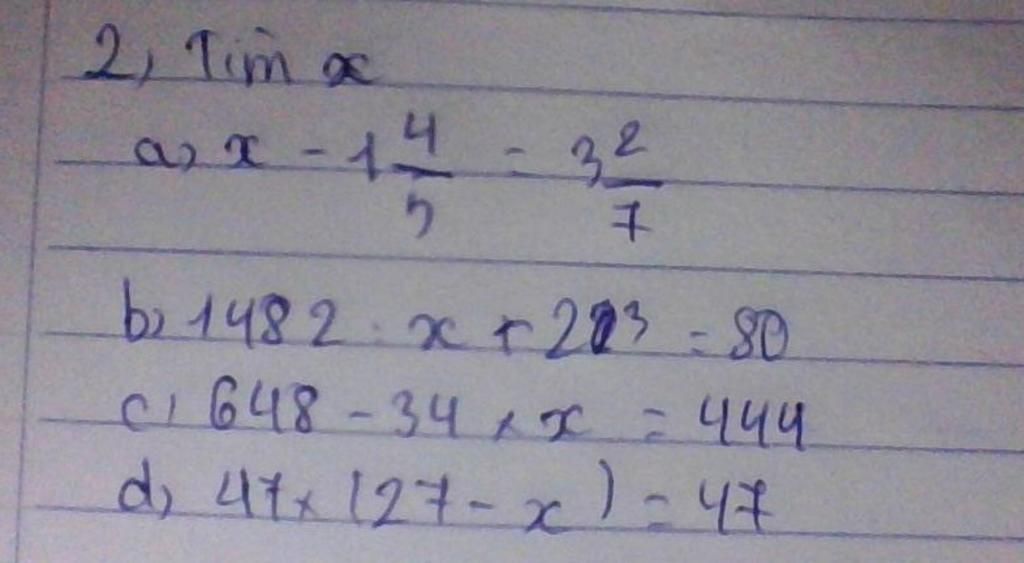 2, Tìm x
a, x - 1 4/5 = 3 2/7
b, 1482 : x + 23 = 80
c, 648 - 34 × x = 444
d, 47 × (27 - x) = 47